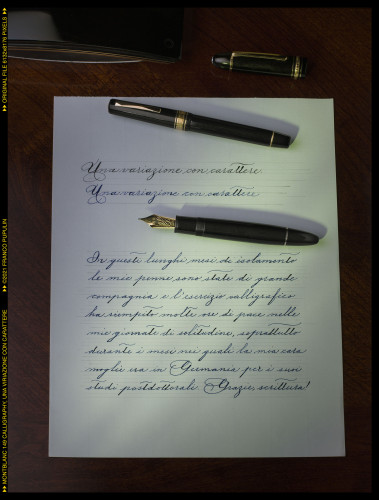 Una variazione con carattere
Una variazione con carattere
In questi lunghi mesi di isolamento
le mie penne sono state di grande
compagnia e l'esercizio calligrafico
ha riempito molte ore di pace nelle
mie giornate di solitudine, soprattutto
durante i mesi nei quali la mia cara
moglie era in Germania per i suoi
studi postdottorali. Grazie, scrittura!
MONTBLANC 149 CALLIGRAPHY, UNA VARIAZIONE CON CARATTERE
©2021 FRANCO PUPULIN
ORIGINAL FILE 6132x8176 PIXELS